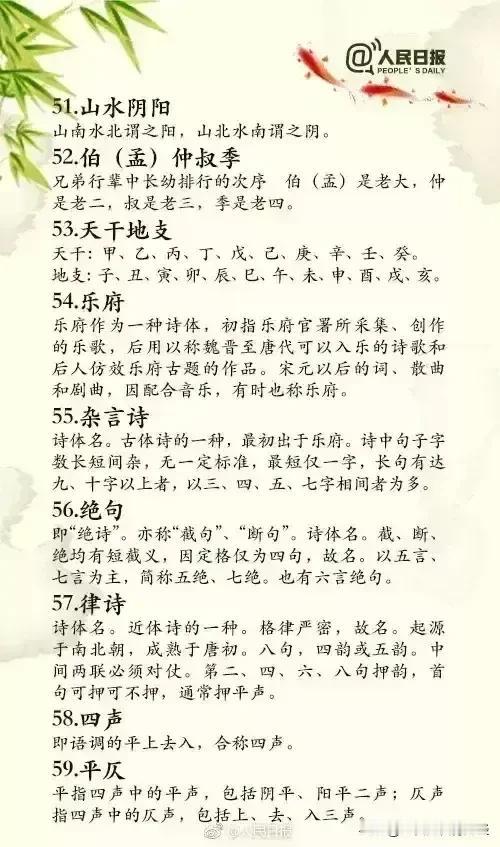 @人民日报
PEOPLE'S DAILY
51.山水阴阳
山南水北谓之阳，山北水南谓之阴。
52.伯（孟）仲叔季
兄弟行辈中长幼排行的次序 伯（孟）是老大，仲
是老二，叔是老三，季是老四。
53.天干地支
天干：甲、乙、丙、丁、戊、己、庚、辛、壬、癸。
地支：子、丑、寅、卯、辰、巳、午、未、申、酉、戌、亥。
54.乐府
乐府作为一种诗体，初指乐府官署所采集、创作
的乐歌，后用以称魏晋至唐代可以入乐的诗歌和
后人仿效乐府古题的作品。宋元以后的词、散曲
和剧曲，因配合音乐，有时也称乐府。
55.杂言诗
诗体名。古体诗的一种，最初出于乐府。诗中句子字
数长短间杂，无一定标准，最短仅一字，长句有达
九、十字以上者，以三、四、五、七字相间者为多。
56.绝句
即“绝诗”。亦称“截句”、“断句”。诗体名。截、断、
绝均有短截义，因定格仅为四句，故名。以五言、
七言为主，简称五绝、七绝。也有六言绝句。
57.律诗
诗体名。近体诗的一种。格律严密，故名。起源
于南北朝，成熟于唐初。八句，四韵或五韵。中
间两联必须对仗。第二、四、六、八句押韵，首
句可押可不押，通常押平声。
58.四声
即语调的平上去入，合称四声。
59.平仄
平指四声中的平声，包括阴平、阳平二声；仄声
指四声中的仄声，包括上、去、入三声。
@人民日报